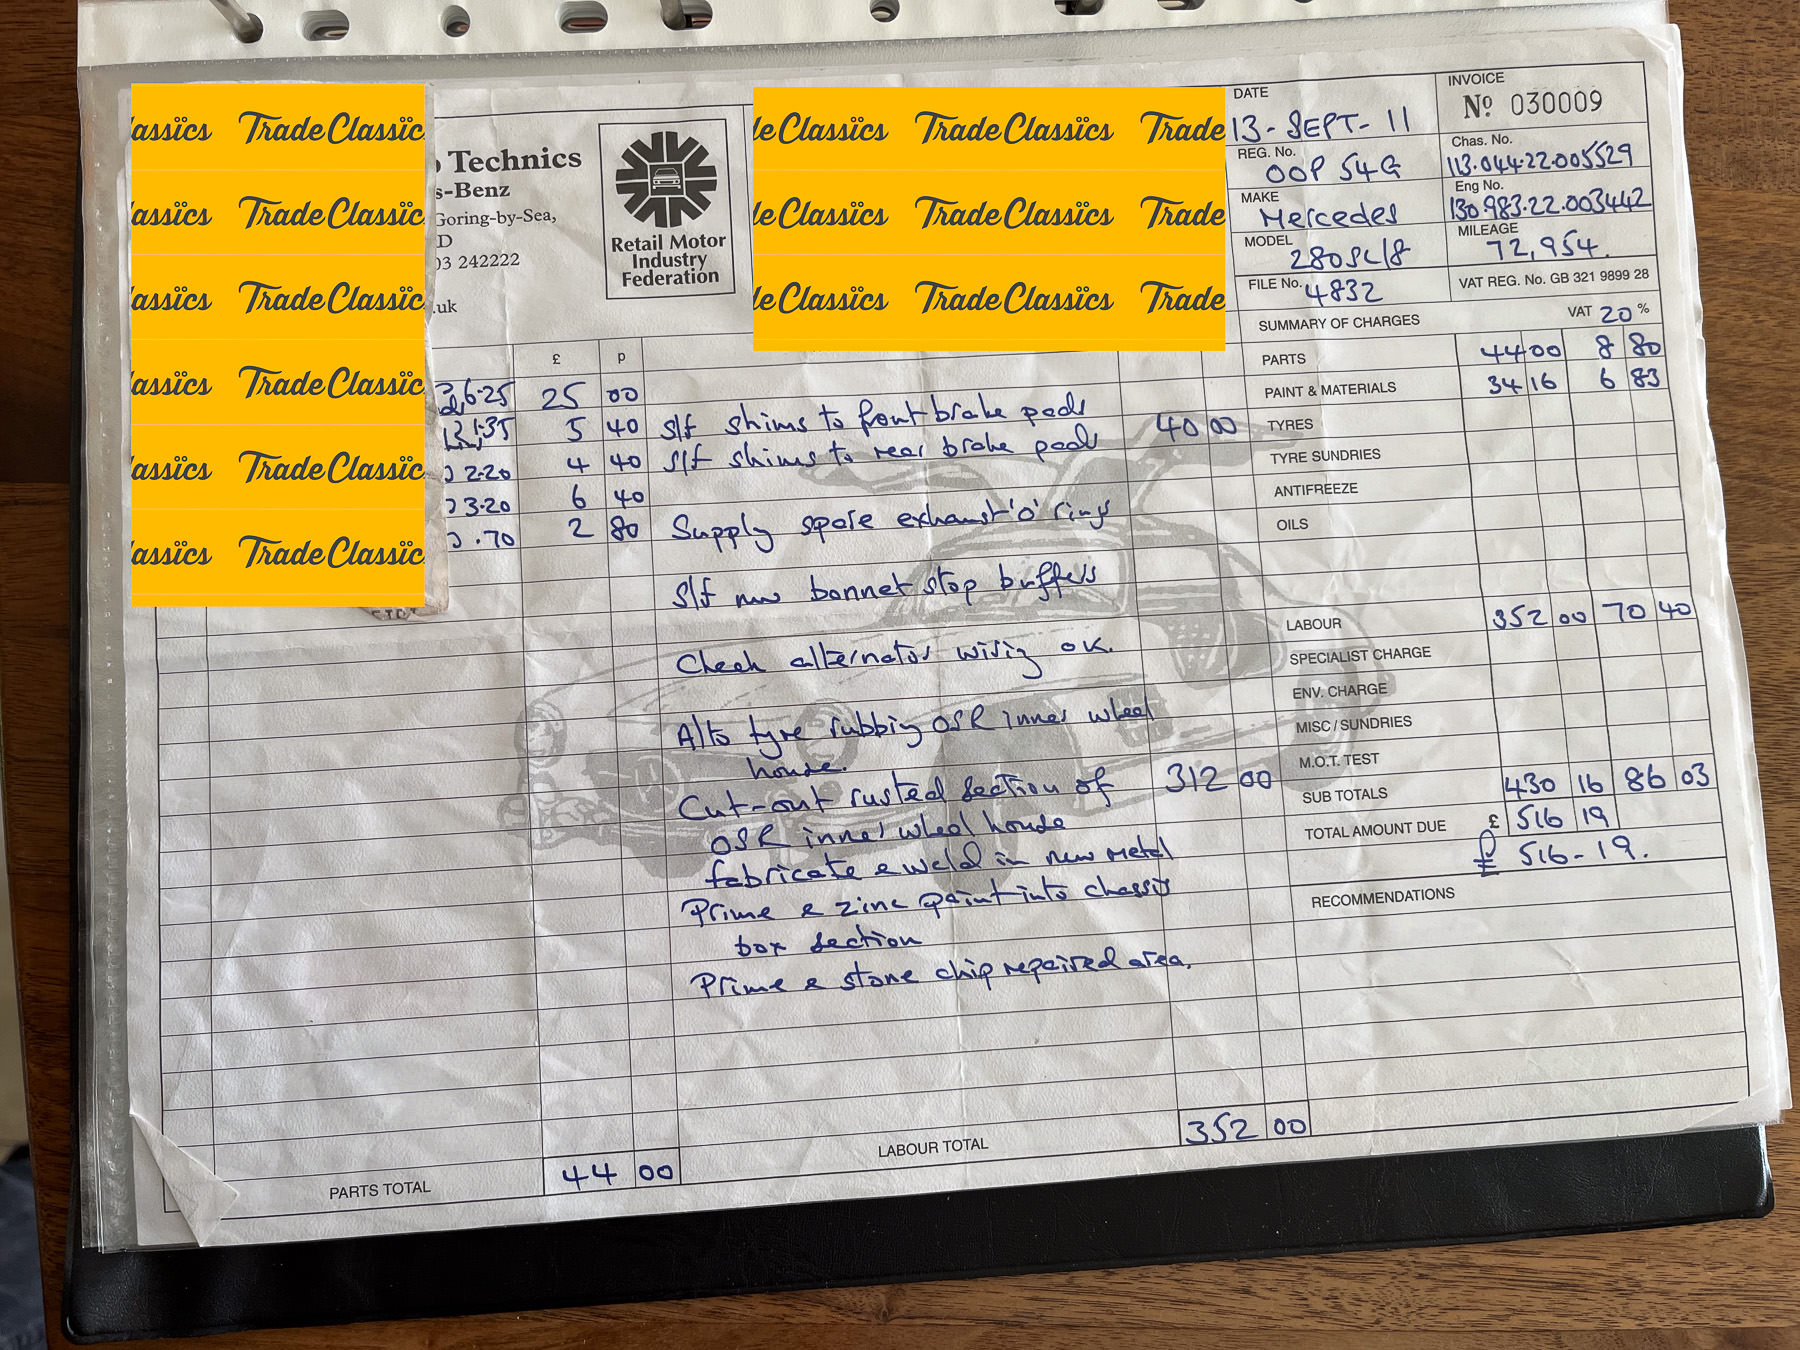 assïcs TradeClassïc
assïcs TradeClassïc
assïcs TradeClassïc
assïcs TradeClassïc
assïcs TradeClassïc
assïcs TradeClassïc
Technics
s-Benz
Goring-by-Sea,
D
03 242222
.uk
Retail Motor
Industry
Federation
leClassïcs TradeClassïcs Trade
leClassïcs TradeClassïcs Trade
leClassïcs TradeClassïcs Trade
DATE
13-SEPT-11
INVOICE
Nº 030009
REG. No.
OOP 54G
Chas. No.
113.044.22.005529
MAKE
Mercedes
Eng No.
130.983.22.003442
MODEL
280SL/8
MILEAGE
72,954.
FILE No. 4832
VAT REG. No. GB 321 9899 28
SUMMARY OF CHARGES VAT 20 %
£ p
6.25 25 00
1.35 5 40
2.20 4 40
3.20 6 40
.70 2 80
PARTS TOTAL 44 00
S/f shims to front brake pads
S/f shims to rear brake pads 40 00
Supply spare exhaust 'O' rings
S/f new bonnet stop buffers
Check alternator wiring OK.
Also tyre rubbing OSR inner wheel
house.
Cut-out rusted section of 312 00
OSR inner wheel house
fabricate & weld in new metal
Prime & zinc paint into chassis
box section
Prime & stone chip repaired area.
LABOUR TOTAL 352 00
PARTS 44 00 8 80
PAINT & MATERIALS 34 16 6 83
TYRES
TYRE SUNDRIES
ANTIFREEZE
OILS
LABOUR 352 00 70 40
SPECIALIST CHARGE
ENV. CHARGE
MISC / SUNDRIES
M.O.T. TEST
SUB TOTALS 430 16 86 03
TOTAL AMOUNT DUE £ 516 19
£ 516-19.
RECOMMENDATIONS